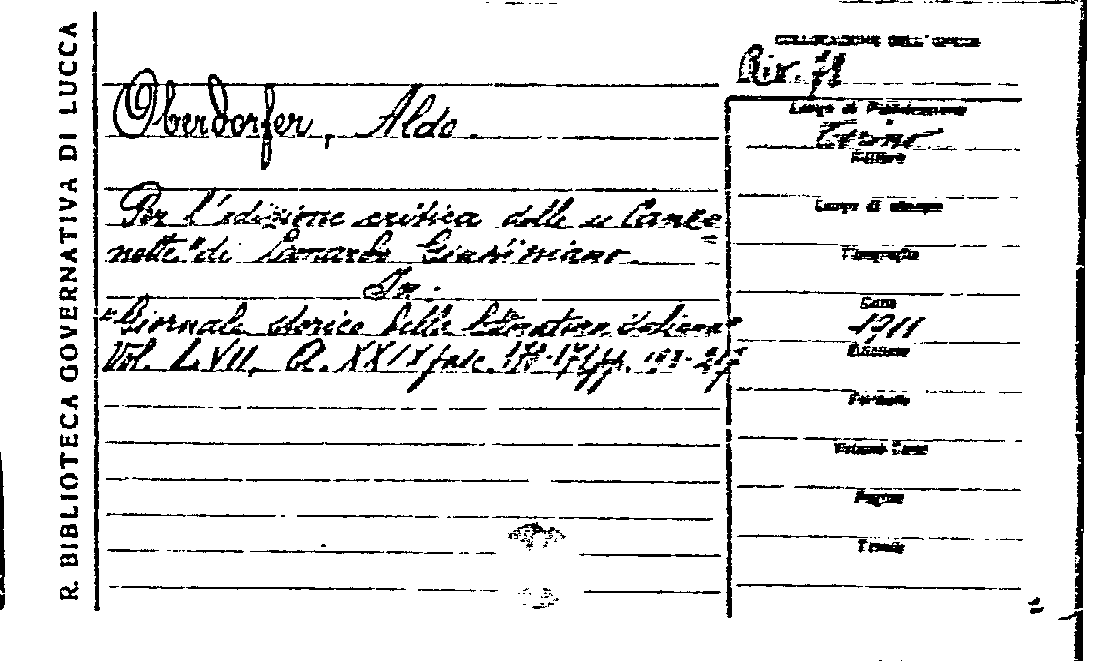 R. BIBLIOTECA GOVERNATIVA DI LUCCA
COLLOCAZIONE DELL'OPERA
Riv.
Oberdorfer, Aldo.
Luogo di Pubblicazione
Torino
Editore
Per l'edizione critica delle "Canzo=
nette" di Leonardo Giustiniano.
In:
"Giornale storico della letteratura italiana"
Vol. LVII, A. XXIX fasc. pp. 193-217
Luogo di stampa
Tipografia
Data
1911
Edizione
Formato
Volume
Pagine
Tavole